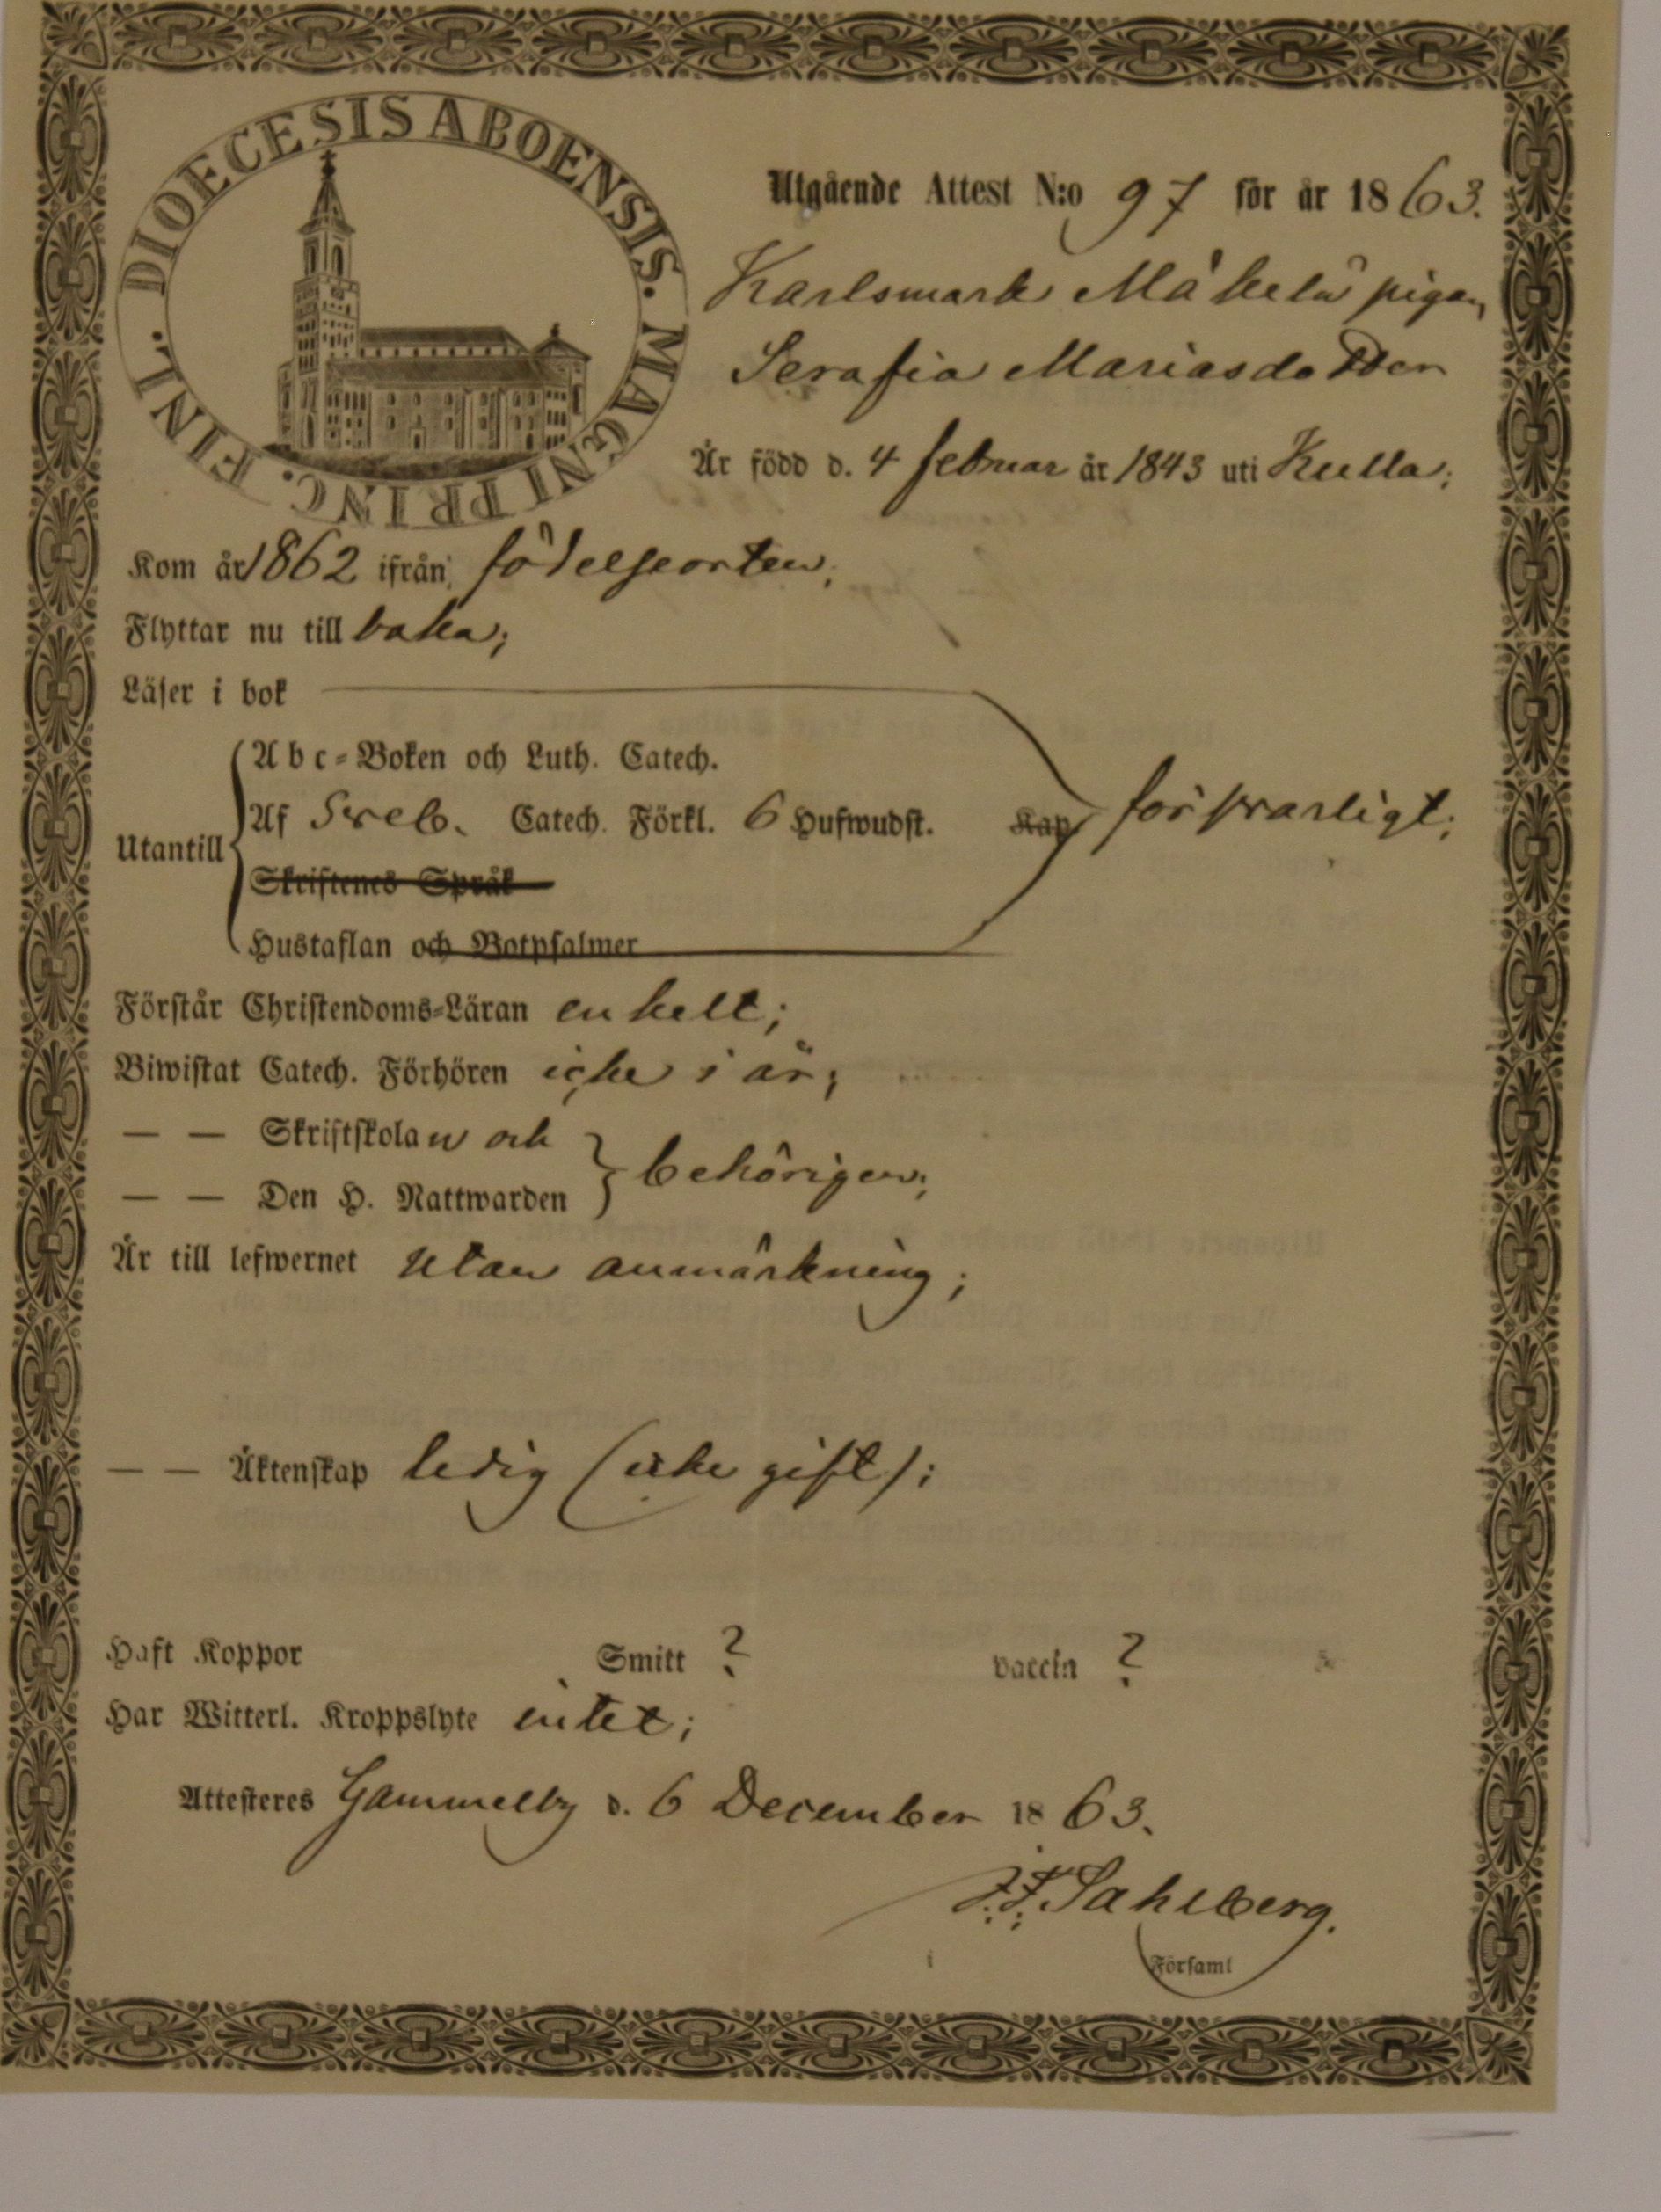 DIOECESIS ABOENSIS. MAGNI PRINC. FINL.
Utgående Attest N:o 97 för år 1863.
Karlsmark Mäkelä pigan,
Serafia Mariasdotter
Är född d. 4 februar år 1843 uti Kulla;
Kom år 1862 ifrån födelseorten;
Flyttar nu till baka;
Läser i bok
Abc-Boken och Luth. Catech.
Utantill Af Sveb. Catech. Förkl. 6 Hufwudst. Kap. försvarligt;
Skriftenes Språk
Hustaflan och Botpsalmer
Förstår Christendoms-Läran enkelt;
Biwistat Catech. Förhören icke i år;
— — Skriftskolan och
— — Den H. Nattwarden behörigen;
Är till lefwernet utan anmärkning;
— — Äktenskap ledig (icke gift);
Haft Koppor Smitt ? vaccin ?
Har Witterl. Kroppslyte intet;
Attesteres Gammelby d. 6 December 1863.
J.F. Sahlberg.
i Församl